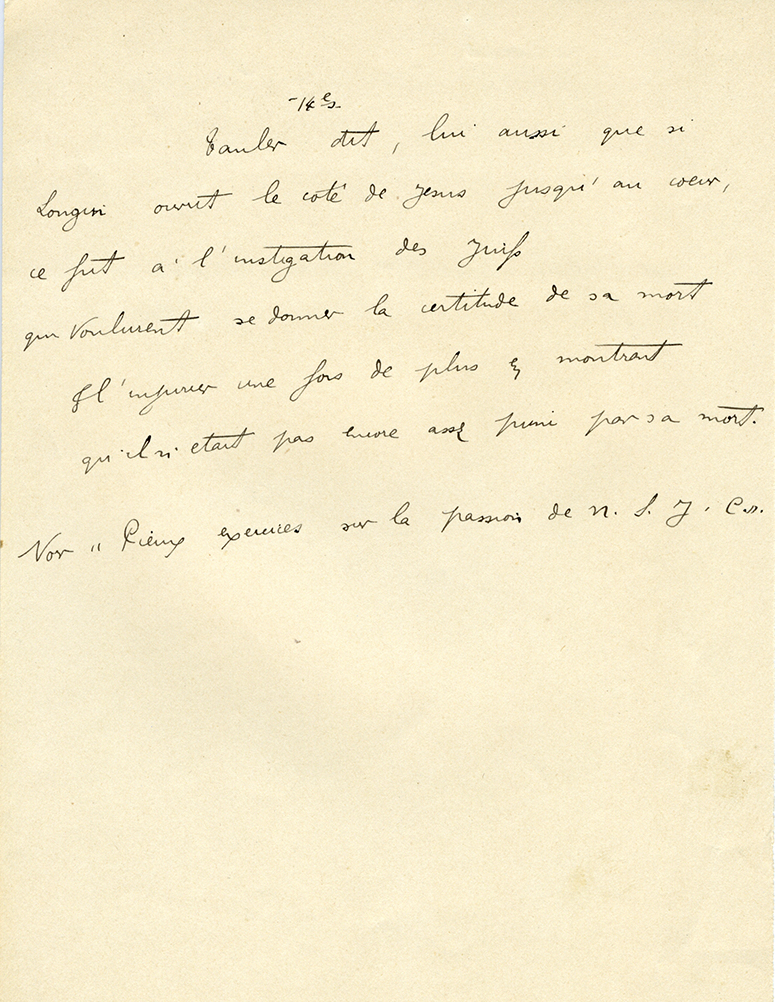 -14e s.
Tauler dit, lui aussi que si
Longin ouvrit le coté de Jesus jusqu'au coeur,
ce fut à l'instigation des Juifs
qui voulurent se donner la certitude de sa mort
& l'injurier une fois de plus en montrant
qu'il n'etait pas encore assez puni par sa mort.
Voir " Pieux exercices sur la passion de N. S. J. Ch.